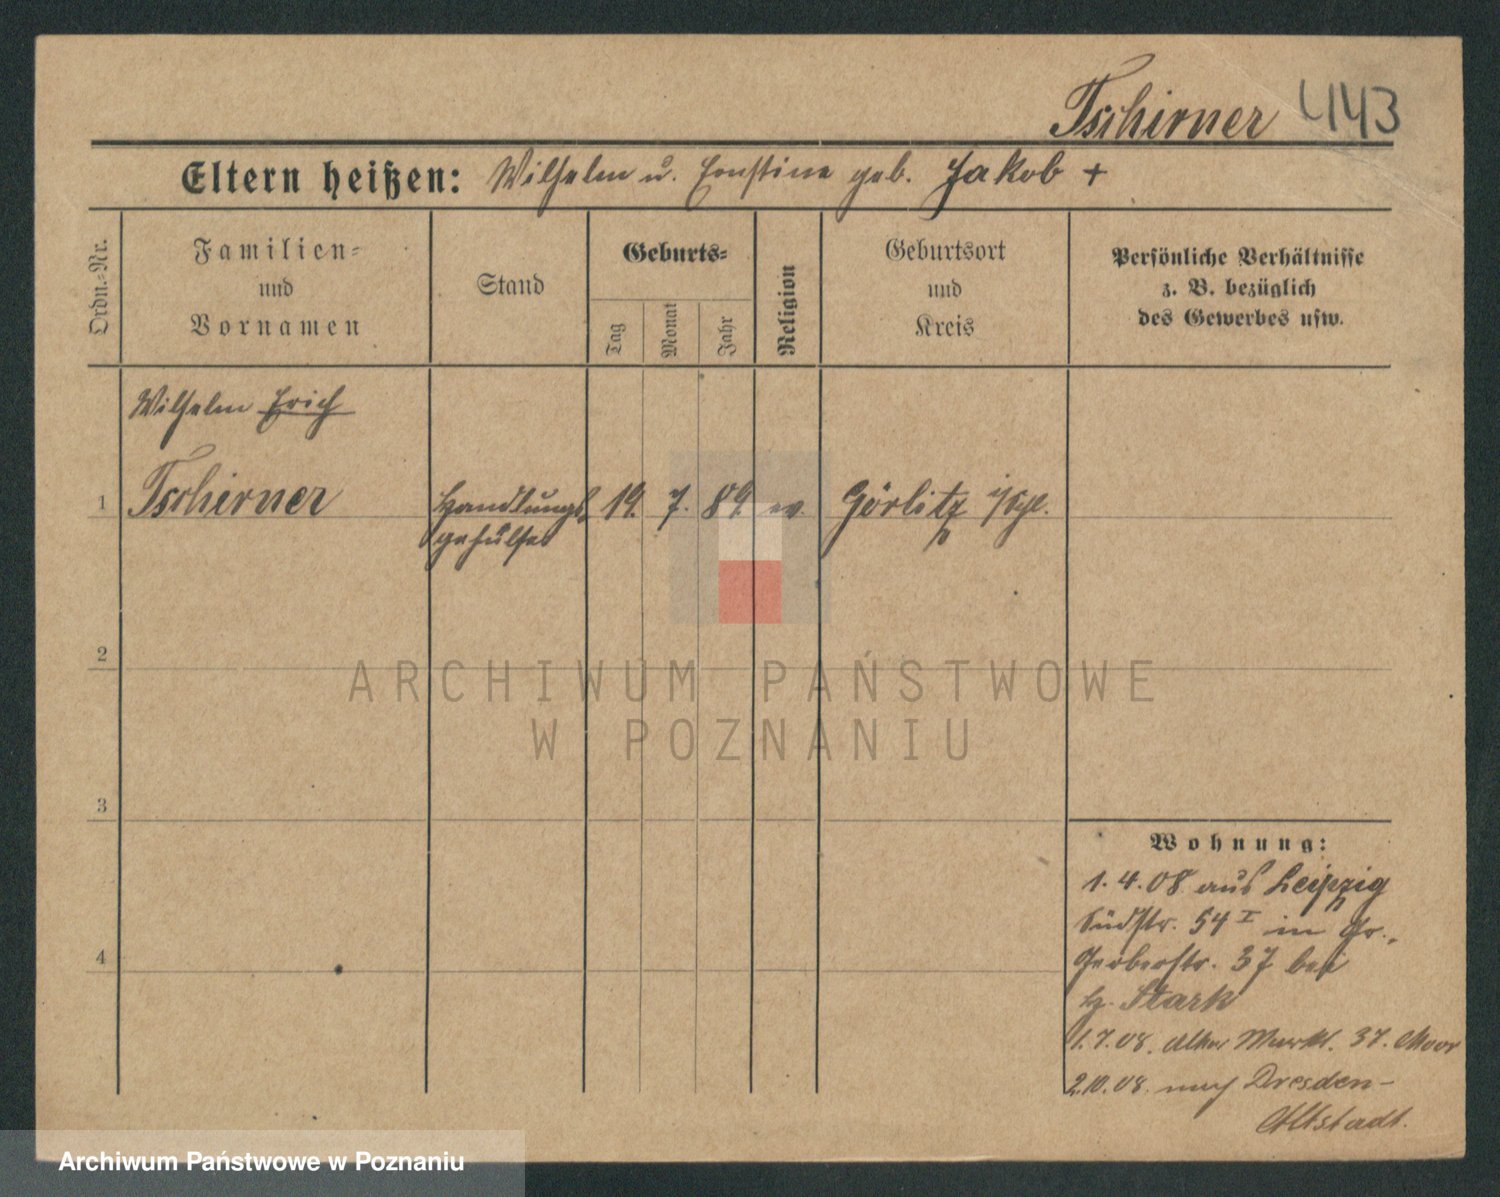 Tschirner 443
Eltern heißen: Wilhelm u. Ernstine geb. Jakob +
Ordn.-Nr.
Familien-
und
Vornamen
Stand
Geburts-
Tag
Monat
Jahr
Religion
Geburtsort
und
Kreis
Persönliche Verhältnisse
z. B. bezüglich
des Gewerbes usw.
Wilhelm Erich
1 Tschirner Handlungs- 19. 7. 89. ev. Görlitz i/Schl.
gehülfe
2
ARCHIWUM PAŃSTWOWE
W POZNANIU
3
Wohnung:
1. 4. 08 aus Leipzig
Südstr. 54 I in Gr.
Gerberstr. 37 bei
Stark
4
1. 7. 08. Alter Markt. 37.
2. 10. 08. nach Dresden-
Altstadt.
Archiwum Państwowe w Poznaniu